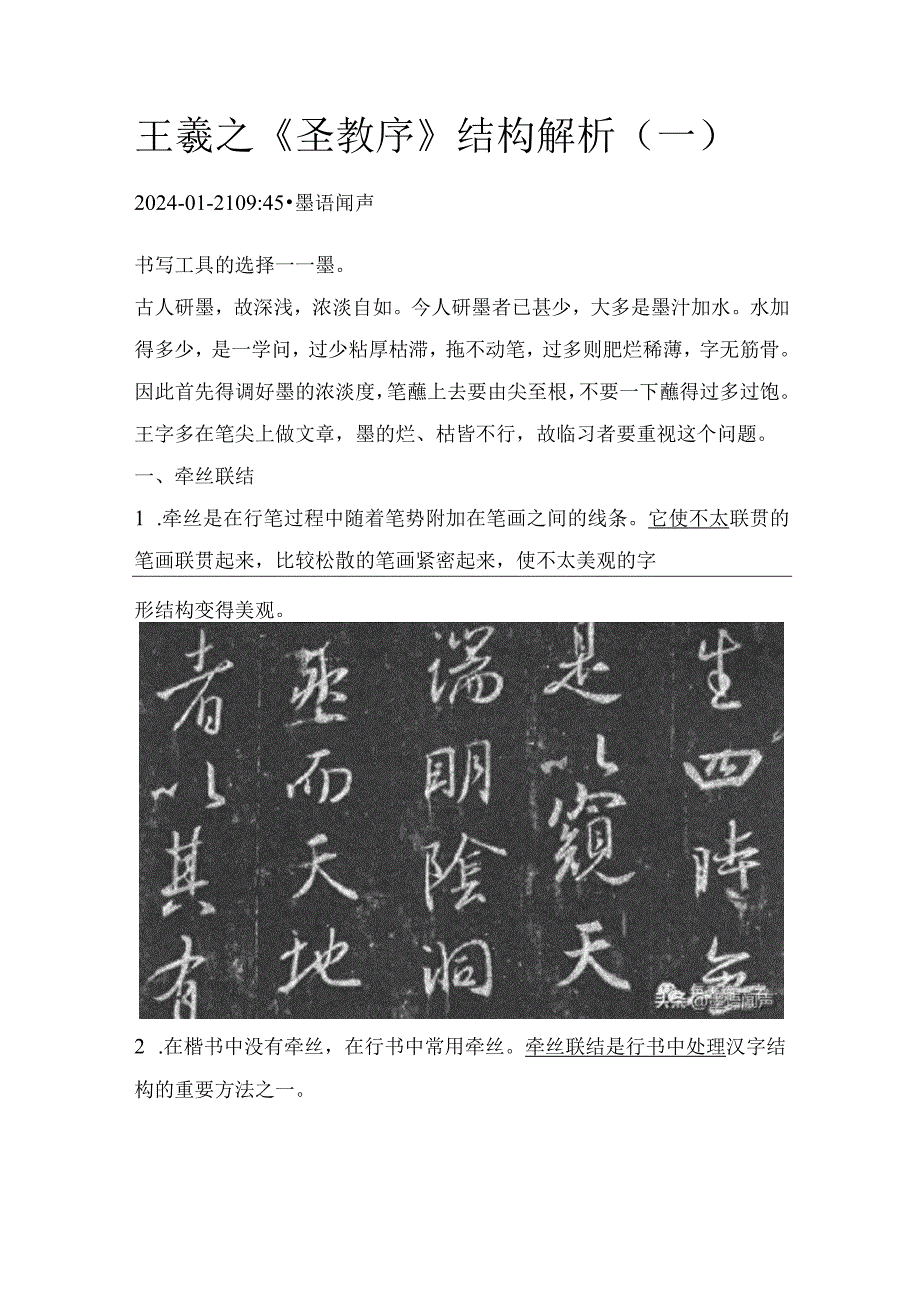 王羲之《圣教序》结构解析（一）
2024-01-2109:45•墨语闻声
书写工具的选择一一墨。
古人研墨，故深浅，浓淡自如。今人研墨者已甚少，大多是墨汁加水。水加
得多少，是一学问，过少粘厚枯滞，拖不动笔，过多则肥烂稀薄，字无筋骨。
因此首先得调好墨的浓淡度，笔蘸上去要由尖至根，不要一下蘸得过多过饱。
王字多在笔尖上做文章，墨的烂、枯皆不行，故临习者要重视这个问题。
一、牵丝联结
1 .牵丝是在行笔过程中随着笔势附加在笔画之间的线条。它使不太联贯的
笔画联贯起来，比较松散的笔画紧密起来，使不太美观的字
形结构变得美观。
生四時無
是以窺天
端明陰洞
蚕而天地
者以其有
头条@墨语闻声
2 .在楷书中没有牵丝，在行书中常用牵丝。牵丝联结是行书中处理汉字结
构的重要方法之一。